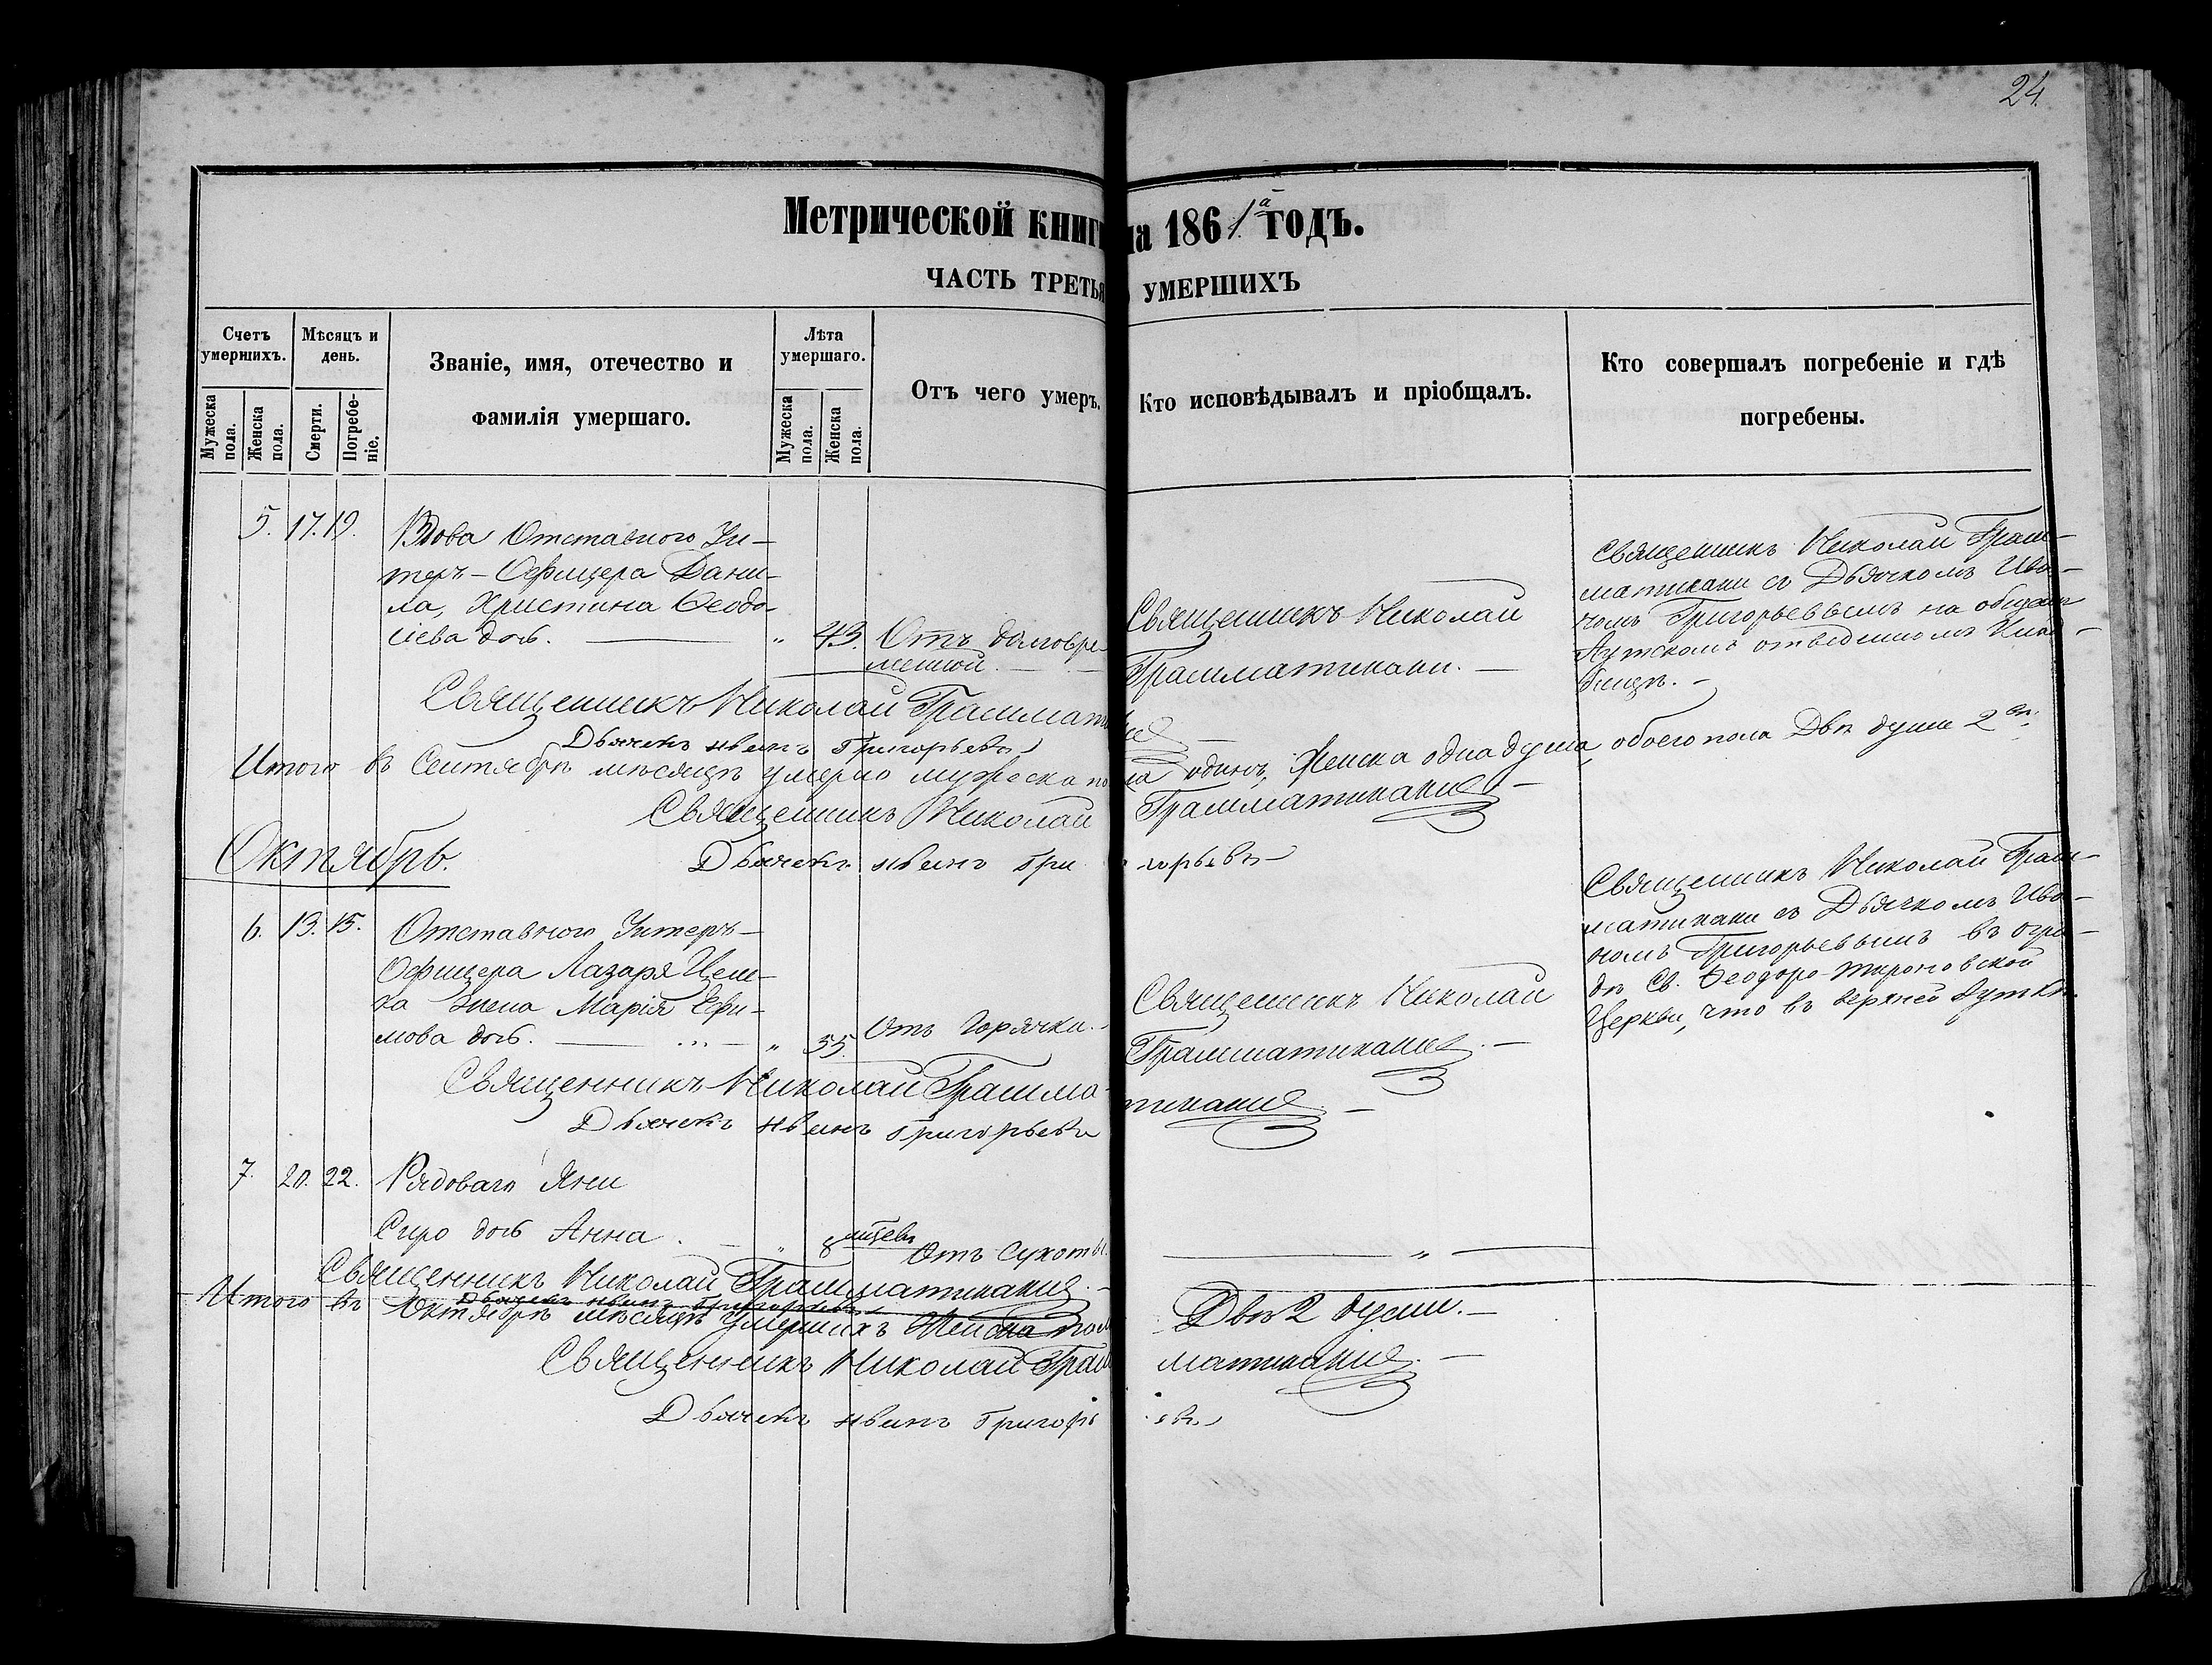 24.
Метрической книги на 1861а годъ.
ЧАСТЬ ТРЕТЬЯ УМЕРШИХЪ
Счетъ умершихъ.
Мѣсяцъ и день.
Званіе, имя, отечество и фамилія умершаго.
Лѣта умершаго.
Отъ чего умеръ.
Кто исповѣдывалъ и пріобщалъ.
Кто совершалъ погребеніе и гдѣ погребены.
Мужеска пола.
Женска пола.
Смерти.
Погребеніе.
Мужеска пола.
Женска пола.
5. 17. 19. Вдова Отставного Ун-
теръ-Офицера Дани-
ла, Христина Ѳеодо-
сіева дочь. — „ 43. Отъ долговре-
менной. —
Священникъ Николай
Грамматикаки. —
Священникъ Николай Грам-
матикаки съ Дьячкомъ Ива-
номъ Григорьевымъ на общемъ
Аутскомъ отведенномъ Клад-
бищѣ. —
Священникъ Николай Граммати
Дьячекъ Иванъ Григорьевъ
Итого въ Сентябрѣ мѣсяцѣ умерло мужеска пола одинъ, Женска одна душа, обоего пола Двѣ души 2
Священникъ Николай Грамматикаки —
Дьячекъ Иванъ Григорьевъ
Октябрь.
6. 13. 15. Отставного Унтеръ-
Офицера Лазаря
жена Марія Ефи-
мова дочь. — „ 55. Отъ Горячки. —
Священникъ Николай
Грамматикаки. —
Священникъ Николай Грам-
матикаки съ Дьячкомъ Ива-
номъ Григорьевымъ въ огра-
дѣ Св. Ѳеодоро-Тироновской
Церкви, что въ верхней Аутки.
Священникъ Николай Грамматикаки —
Дьячекъ Иванъ Григорьевъ
7. 20. 22. Рядоваго Яни
Сиро дочь Анна. — „ 8 мѣсяцевъ Отъ Сухоты. — „ —
Священникъ Николай Грамматикаки. —
Дьячекъ Иванъ Григорьевъ
Итого въ Октябрѣ мѣсяцѣ умершихъ Женска пола Двѣ 2 души. —
Священникъ Николай Грамматикаки. —
Дьячекъ Иванъ Григорьевъ